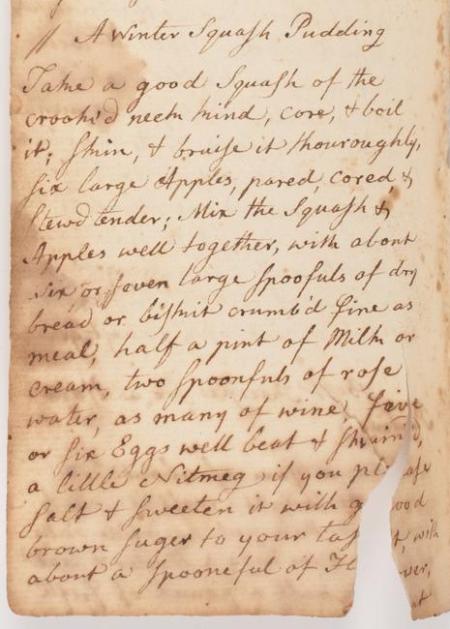 A Winter Squash Pudding
Take a good Squash of the
crook'd neck kind, core, & boil
it; skin, & bruise it thouroughly,
six large Apples, pared, cored, &
stewd tender; Mix the Squash &
Apples well together, with about
six or seven large spoofuls of dry
bread or biskit crumb'd fine as
meal, half a pint of Milk or
cream, two spoonfuls of rose
water, as many of wine, five
or six Eggs well beat & strain'd,
a little Nitmeg, if you pl ase
salt & sweeten it with g ood
brown suger to your tas t, with
about a spooneful of Fl wer,